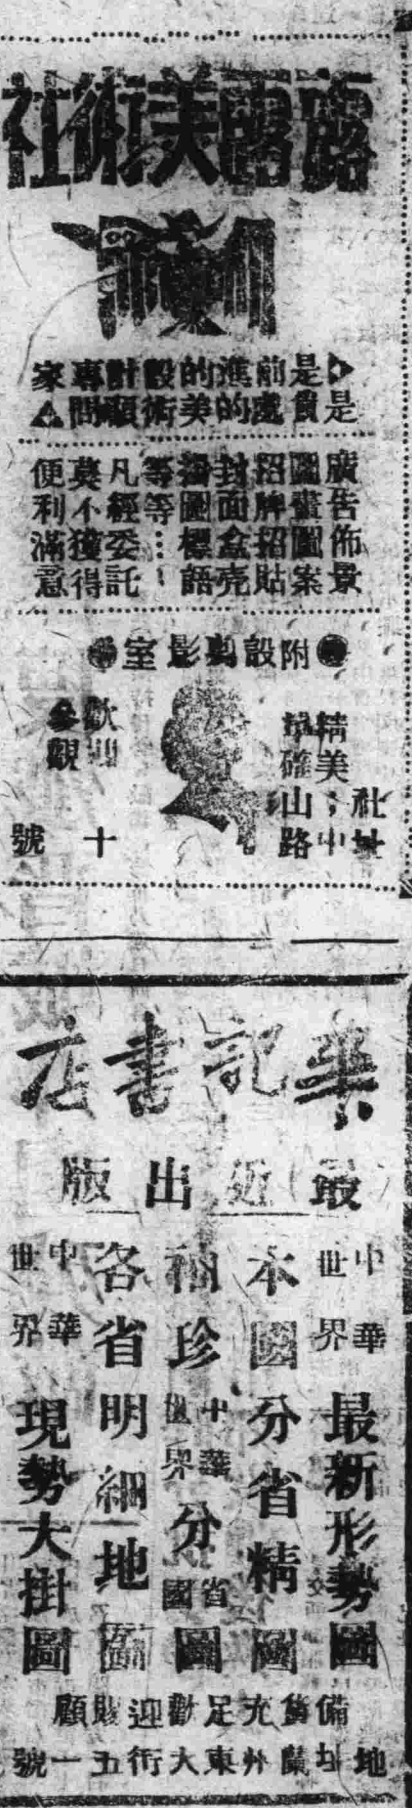 露露美術社
是前進的設計專家
是貴處的美術顧問
廣告佈景
圖畫圖案
招牌招貼
封面盒壳
插圖標語
等等……
凡經委託
莫不獲得
便利滿意
附設剪影室
精美
準確
歡迎
參觀
社址
中山路
十號
樂記書店
最近出版
中華世界最新形勢圖
本國分省精圖
袖珍中華世界分省分國圖
各省明細地圖
中華世界現勢大掛圖
備貨充足歡迎賜顧
地址蘭州東大街五一號